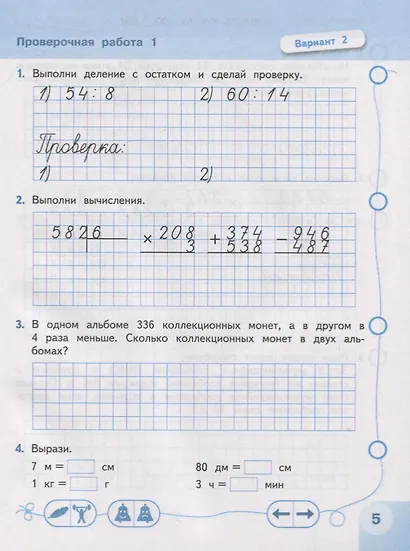 Проверочная работа 1
Вариант 2
1. Выполни деление с остатком и сделай проверку.
1) 54 : 8 2) 60 : 14
Проверка:
1) 2)
2. Выполни вычисления.
5826 × 208 + 374 − 946
3 538 487
3. В одном альбоме 336 коллекционных монет, а в другом в
4 раза меньше. Сколько коллекционных монет в двух аль-
бомах?
4. Вырази.
7 м = см 80 дм = см
1 кг = г 3 ч = мин
5